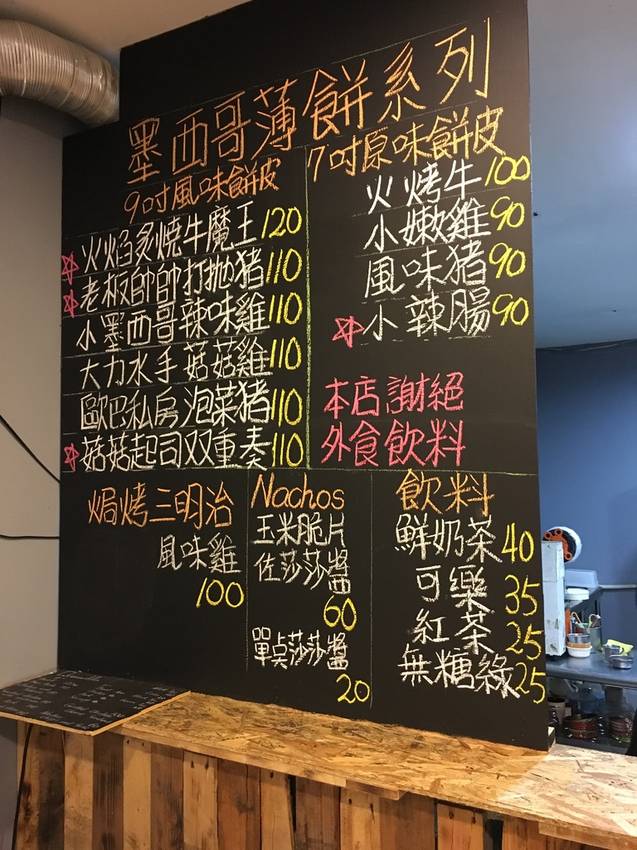 墨西哥薄餅系列
9吋風味餅皮
☆火焰炙燒牛魔王120
☆老板帥帥打拋豬110
小墨西哥辣味雞110
大力水手菇菇雞110
歐巴私房泡菜豬110
☆菇菇起司双重奏110
7吋原味餅皮
火烤牛100
小嫩雞90
風味豬90
☆小辣腸90
本店謝絕
外食飲料
焗烤三明治
風味雞
100
Nachos
玉米脆片
佐莎莎醬
60
單点莎莎醬
20
飲料
鮮奶茶40
可樂35
紅茶25
無糖綠25